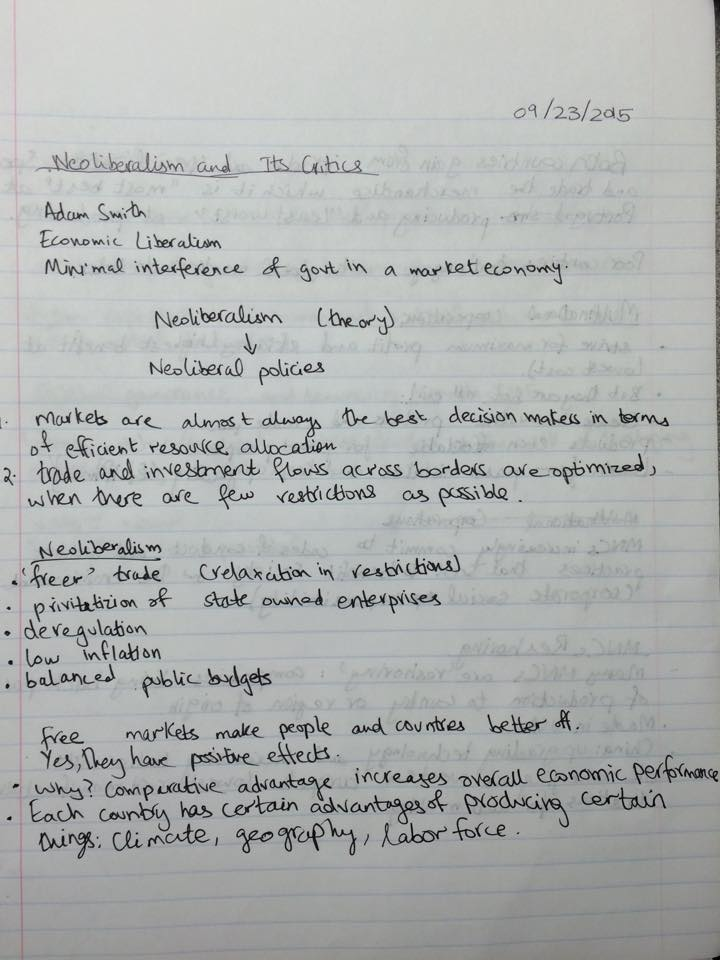 09/23/2015
Neoliberalism and Its Critics
Adam Smith
Economic Liberalism
Minimal interference of govt in a market economy.
Neoliberalism (theory)
↓
Neoliberal policies
1. markets are almost always the best decision makers in terms
of efficient resource allocation
2. trade and investment flows across borders are optimized,
when there are few restrictions as possible.
Neoliberalism
• 'freer' trade (relaxation in restrictions)
• privitatizion of state owned enterprises
• deregulation
• low inflation
• balanced public budgets
free markets make people and countres better off.
Yes, They have positive effects.
• why? Comparative advantage increases overall economic performance
• Each country has certain advantages of producing certain
things: Climate, geography, labor force.